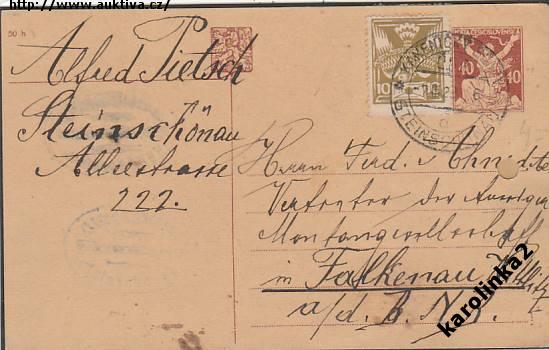 http://www.auktiva.cz/
50 h
Alfred Pietsch
Steinschönau
Alleestrasse
222.
10
ČESKOSLOVENSKÁ
40 40
STEINSCHÖNAU
Herrn Ferd. v.
Vertreter der Aussiger
Montangesellschaft
in Falkenau
a/d. B. N. B.
karolinka2